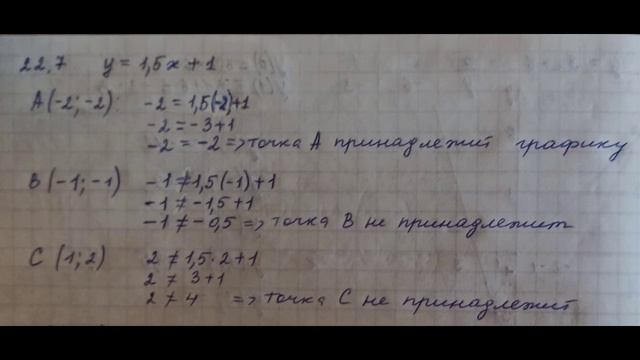 22.7 y = 1,5x + 1
A(-2; -2): -2 = 1,5(-2)+1
-2 = -3+1
-2 = -2 => точка A принадлежит графику
B(-1; -1) -1 ≠ 1,5(-1)+1
-1 ≠ -1,5+1
-1 ≠ -0,5 => точка B не принадлежит
C (1; 2) 2 ≠ 1,5·2+1
2 ≠ 3+1
2 ≠ 4 => точка C не принадлежит